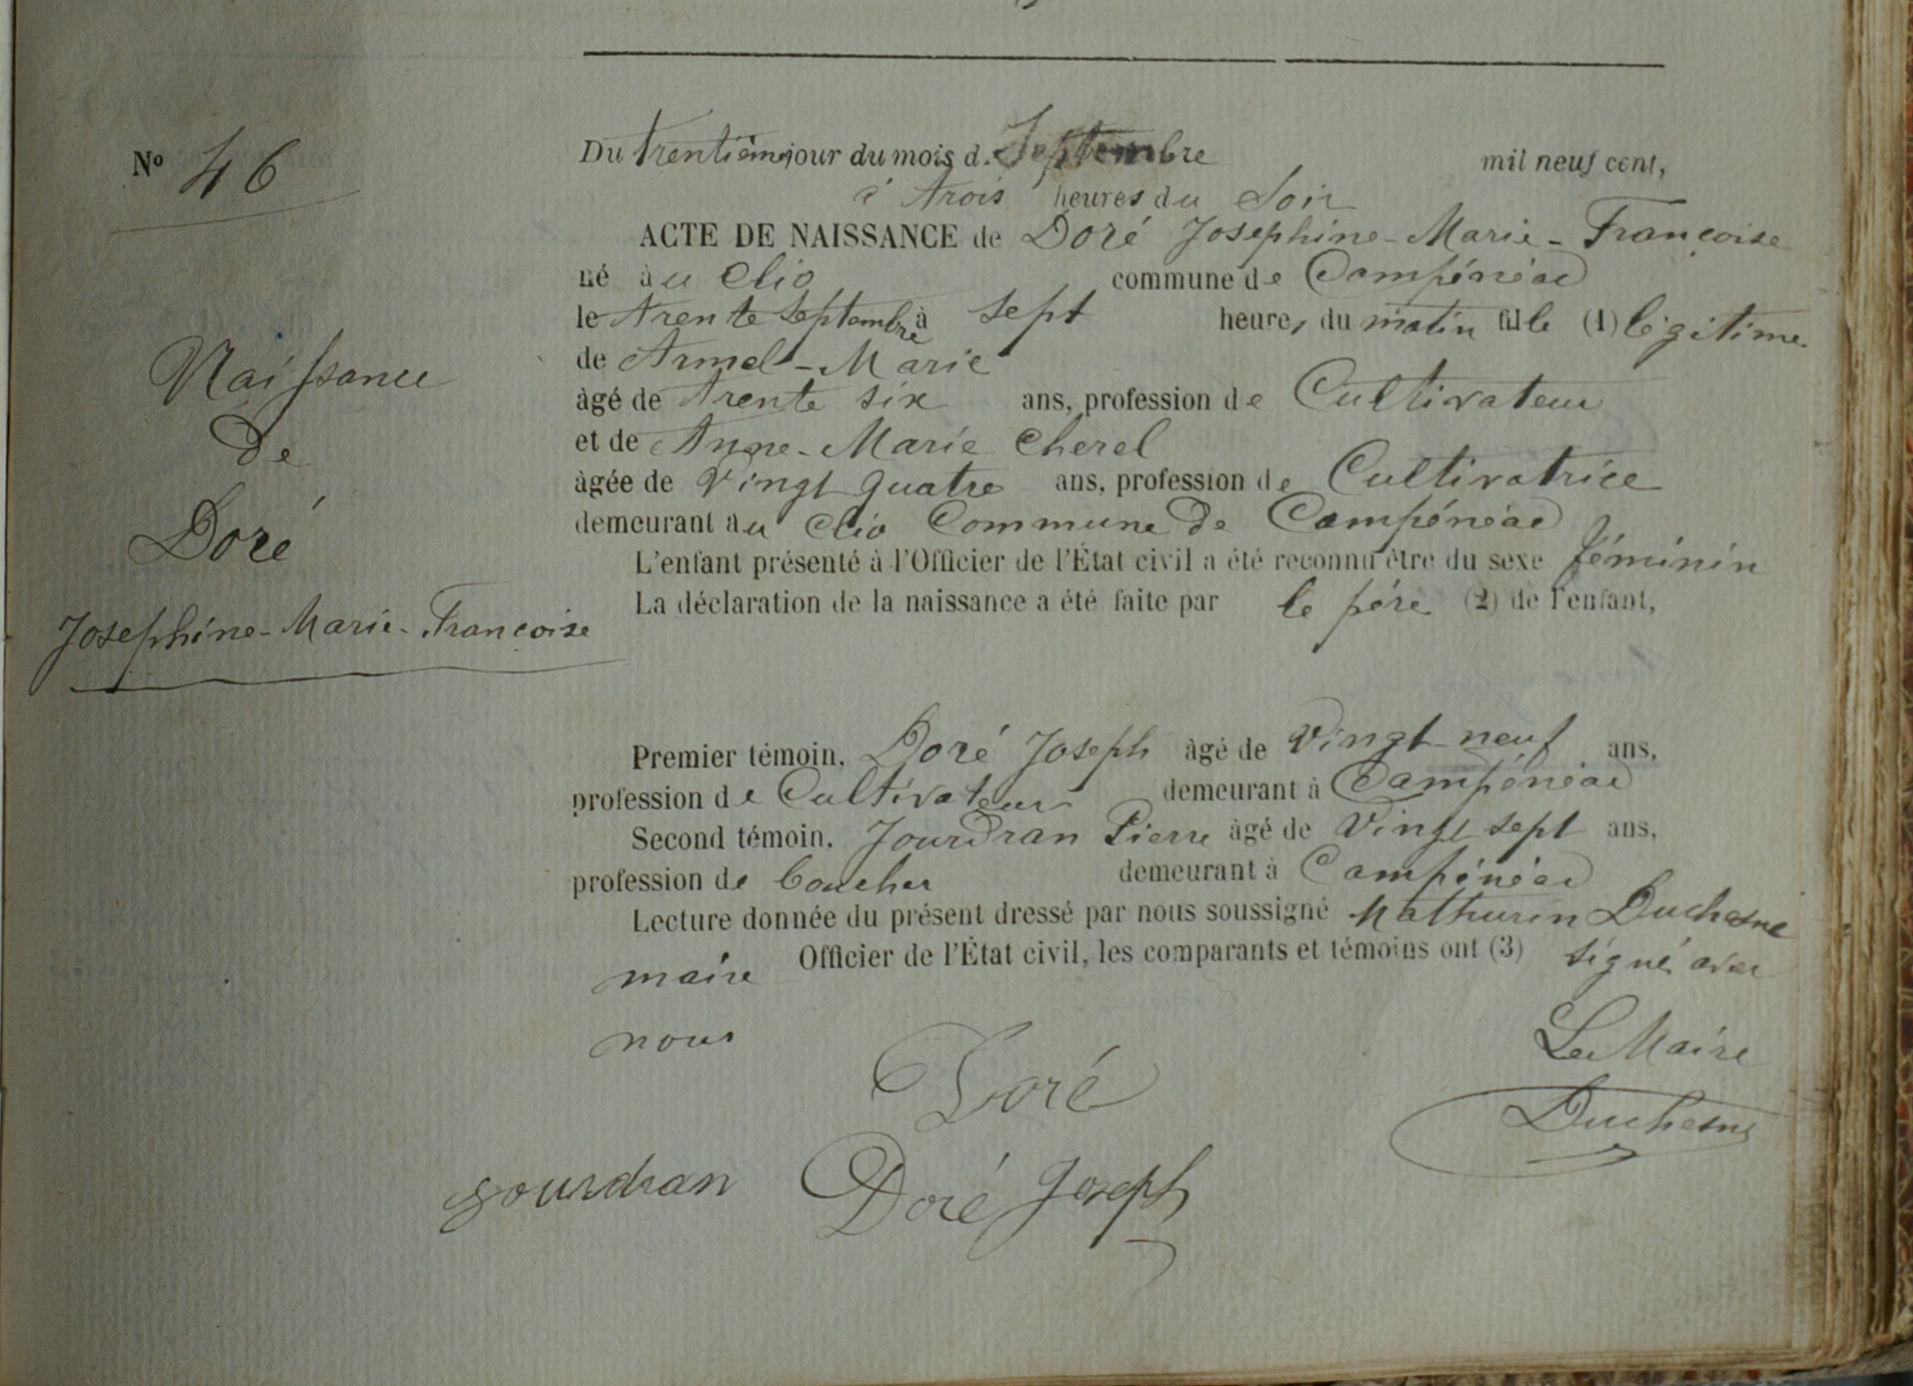 Nº 46
Naissance
de
Doré
Josephine-Marie-Françoise
Du trentième jour du mois d. Septembre mil neuf cent,
à trois heures du Soir
ACTE DE NAISSANCE de Doré Josephine-Marie-Françoise
né au Clio commune de Campénéac
le trente Septembre à sept heures du matin fille (1) légitime
de Armel-Marie
âgé de trente six ans, profession de Cultivateur
et de Anne-Marie Cherel
âgée de Vingt quatre ans, profession de Cultivatrice
demeurant au Clio Commune de Campénéac
L'enfant présenté à l'Officier de l'État civil a été reconnu être du sexe féminin
La déclaration de la naissance a été faite par le père (2) de l'enfant,
Premier témoin, Doré Joseph âgé de Vingt-neuf ans,
profession de Cultivateur demeurant à Campénéac
Second témoin, Jourdran Pierre âgé de Vingt sept ans,
profession de boucher demeurant à Campénéac
Lecture donnée du présent dressé par nous soussigné Mathurin Duchesne
maire Officier de l'État civil, les comparants et témoins ont (3) signé avec
nous
Le Maire
Doré
Duchesne
Jourdran Doré Joseph